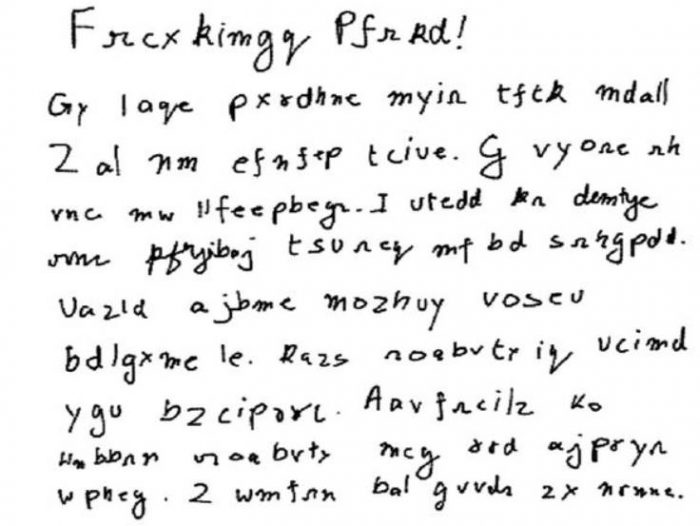 Frcxkimgq Pfrkd!
Gy laqe pxrdhne myin tftk mdall
Z al nm efnftp tcive. G vyone nh
vnc mw feepbegr. I utedd kn demtye
tsuncy mf bd snhgpdd.
Vazld ajbme mozhuy voseu
bdlgxme le. Razs noabvtr iy ucimd
ygu bzciporc. Aavfncilz ko
noabvty mcg rrd ajpryn
wpheg. Z wmfnn bal gvvdn zx